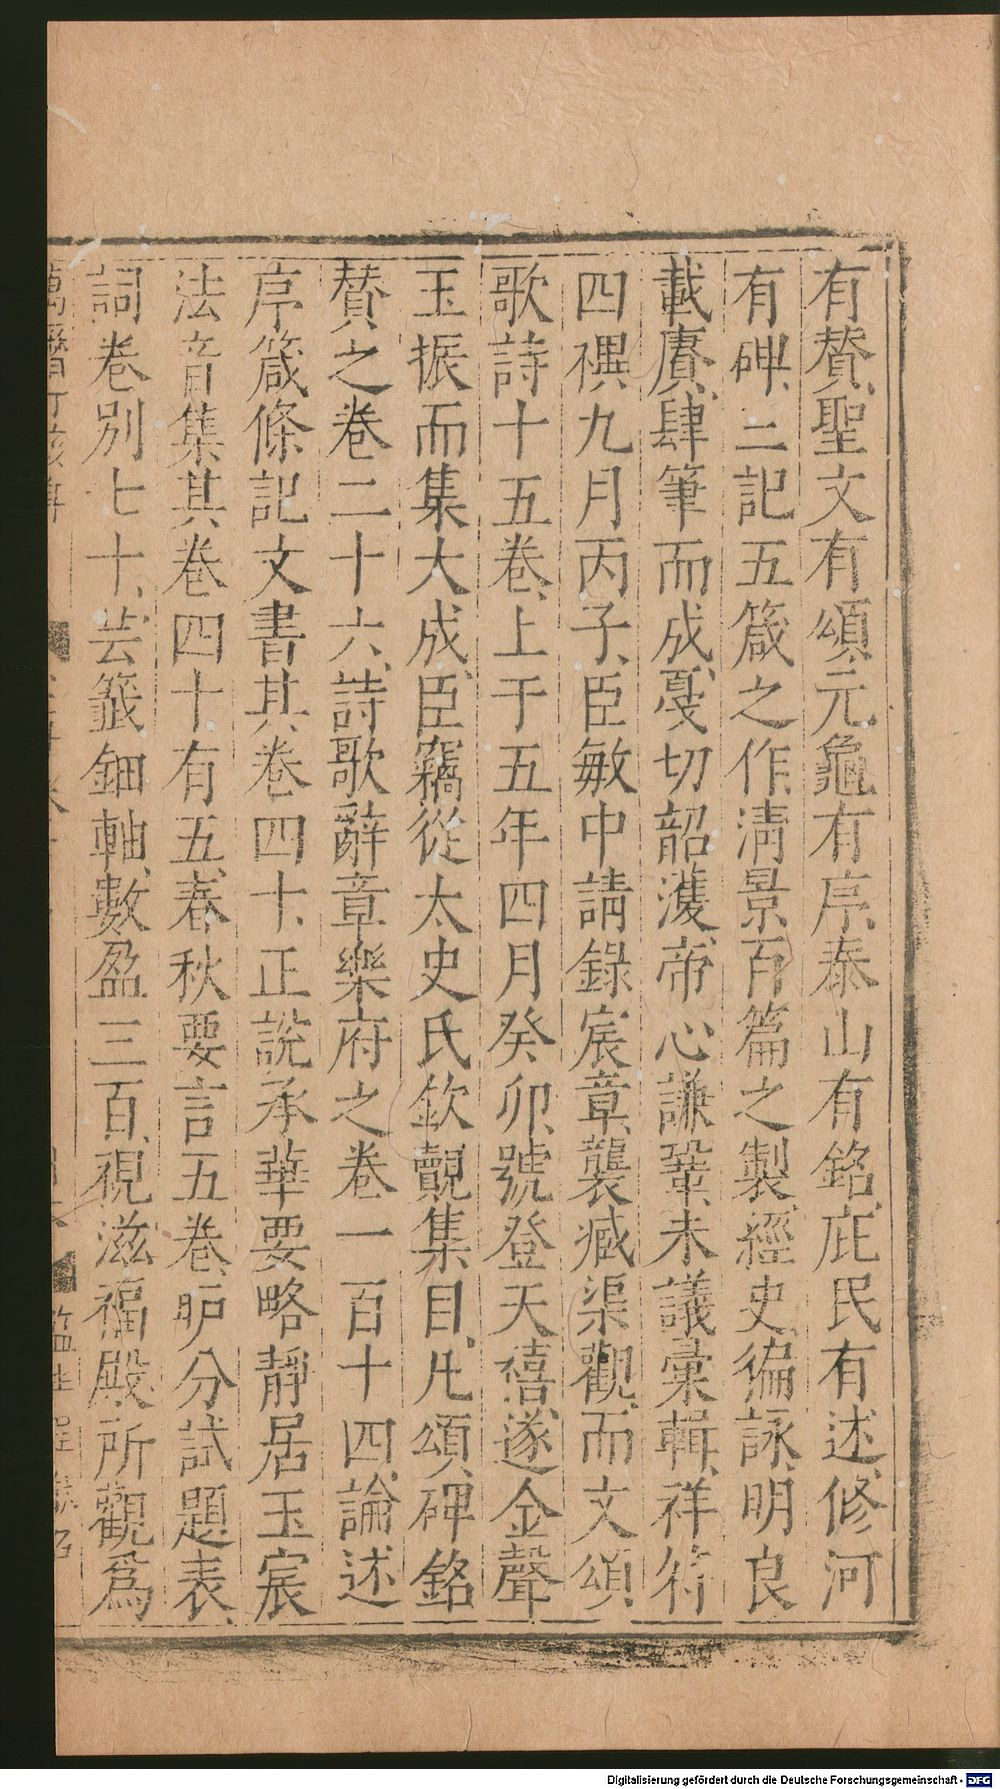 有贊、聖文有頌、元龜有序、泰山有銘、庇民有述、修河
有碑、二記五箴之作、清景百篇之製、經史徧詠、明良
載賡、肆筆而成、戞切韶濩、帝心謙鞏、未議彙輯、祥符
四禩九月丙子、臣敏中請錄宸章、襲臧渠觀、而文頌
歌詩十五卷、上于五年四月癸卯、號登天禧、遂金聲
玉振而集大成、臣竊從太史氏欽覿集目、凡頌碑銘
贊之卷二十六、詩歌辭章樂府之卷一百十四、論述
序箴條記文書其卷四十、正說承華要略靜居玉宸
法音集其卷四十有五、春秋要言五卷、昈分試題表、
詞卷別七十、芸籤鈿軸、數盈三百、視滋福殿、所觀爲
Digitalisierung gefördert durch die Deutsche Forschungsgemeinschaft - DFG